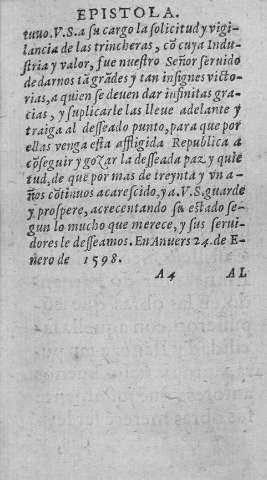 EPISTOLA.
tuuo. V.S. a su cargo la solicitud y vigi-
lancia de las trincheras, cõ cuya Indu-
stria y valor, fue nuestro Señor seruido
de darnos tã grãdes y tan insignes victo-
rias, a quien se deuen dar infinitas gra-
cias, y suplicarle las lleue adelante y
traiga al desseado punto, para que por
ellas venga esta affligida Republica a
cõseguir y gozar la desseada paz y quie
tud, de que por mas de treynta y vn a-
ños cõtinuos a carescido, y a. V.S. guarde
y prospere, acrecentando su estado se-
gun lo mucho que merece, y sus serui-
dores le desseamos. En Anuers 24. de E-
nero de 1598.
A4 AL